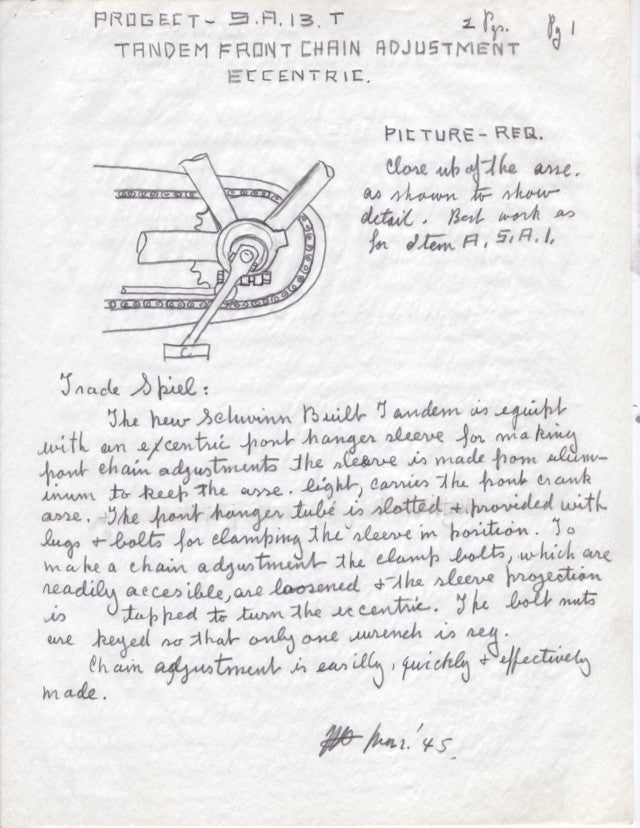 PROGECT - S.A.13.T
2 Pgs. Pg 1
TANDEM FRONT CHAIN ADJUSTMENT
ECCENTRIC.
PICTURE - REQ.
Close up of the asse.
as shown to show
detail. Best work as
for Item A. S.A.1.
Trade Spiel:
The new Schwinn Built Tandem is equipt
with an excentric front hanger sleeve for making
front chain adjustments the sleeve is made from alum-
inum to keep the asse. light, carries the front crank
asse. The front hanger tube is slotted & provided with
lugs & bolts for clamping the sleeve in position. To
make a chain adjustment the clamp bolts, which are
readily accesible, are loosened & the sleeve projection
is tapped to turn the eccentric. The bolt nuts
are keyed so that only one wrench is req.
Chain adjustment is easilly, quickly & effectively
made.
Mar. '45